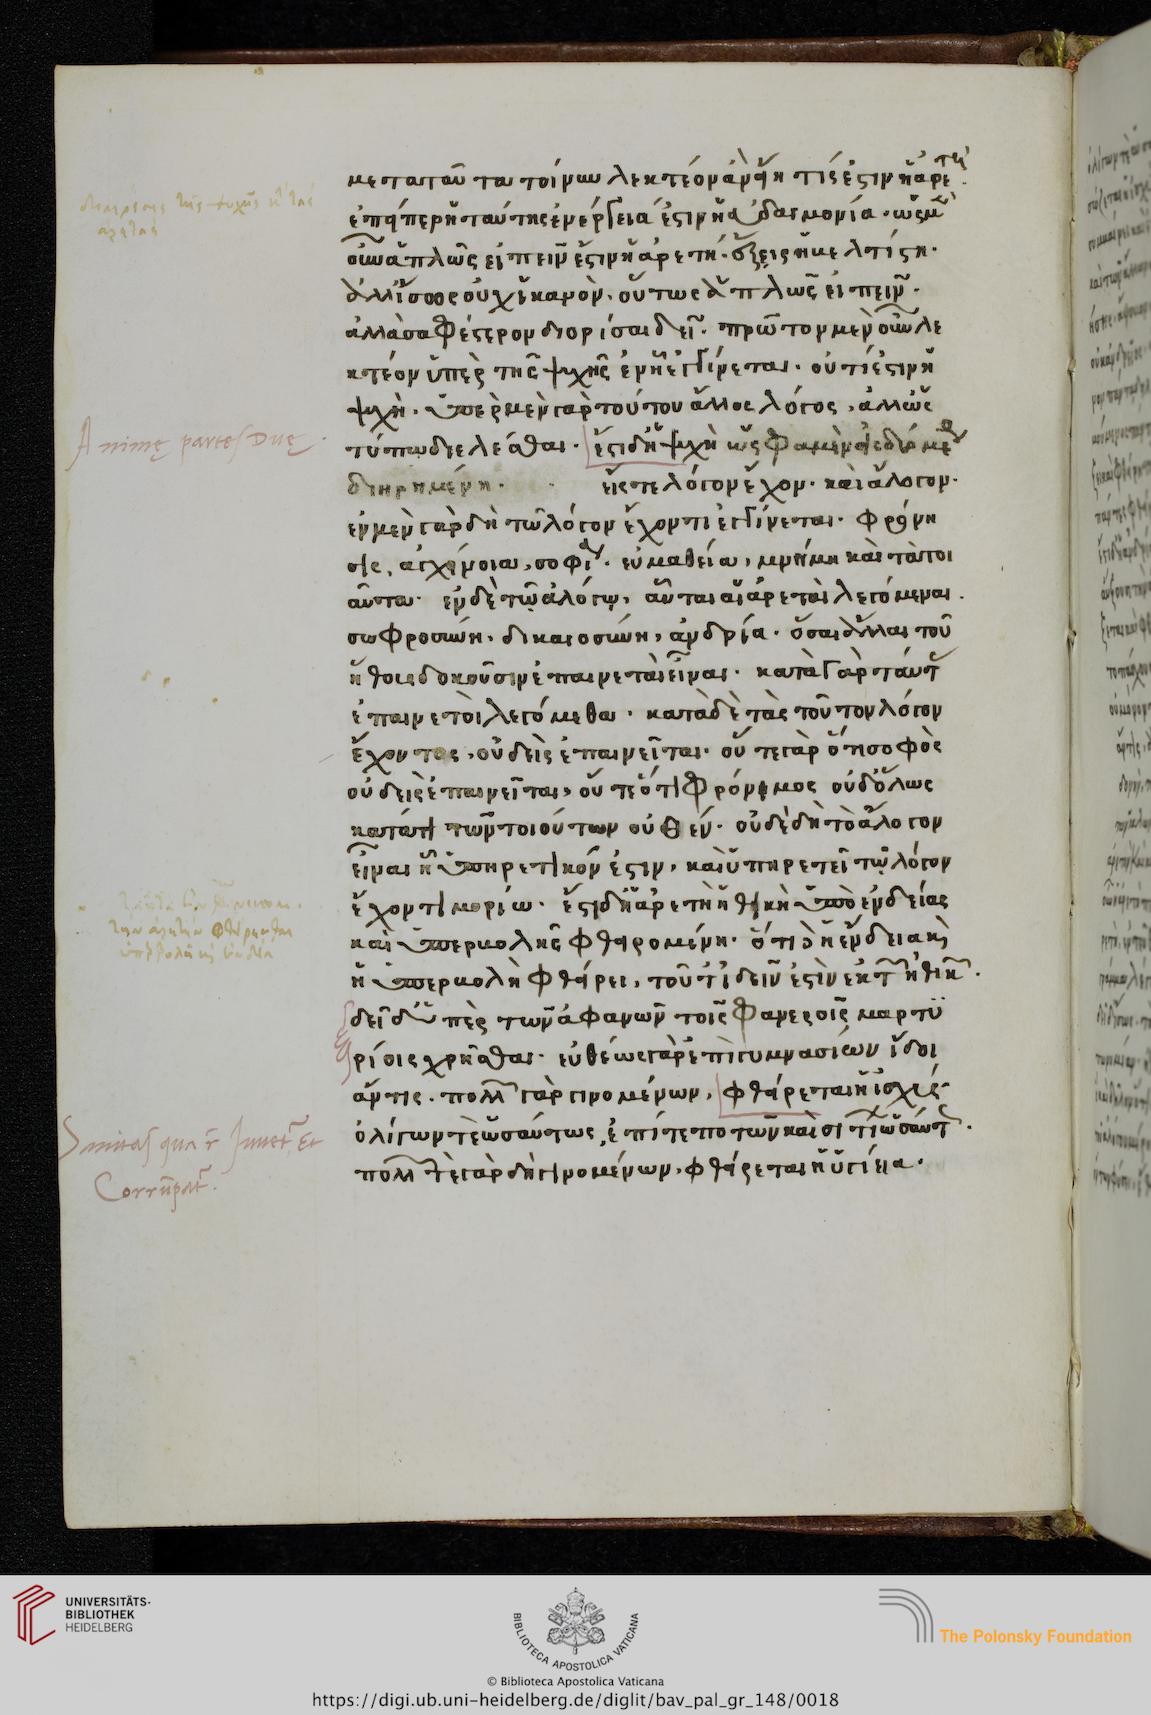 διαιρέσεις τῆς ψυχῆς κατὰ τὰς
ἀρετάς
με τα ταῦτα τοίνυν λεκτέον ἂν εἴη τί ἐστιν ἡ ἀρετὴ
ἐπείπερ ἡ ταύτης ἐνέργειά ἐστιν ἡ εὐδαιμονία. ὡς μὲν
οὖν ἁπλῶς εἰπεῖν ἐστὶν ἡ ἀρετὴ. ἕξις ἡ βελτίστη.
ἀλλ' ἴσως οὐχ ἱκανὸν. οὕτως ἁπλῶς εἰπεῖν.
ἀλλὰ σαφέστερον διορίσαι δεῖ. πρῶτον μὲν οὖν λε
κτέον ὑπὲρ τῆς ψυχῆς ἐν ᾗ ἐγγίνεται. οὐ τί ἐστιν ἡ
ψυχὴ. ὑπὲρ μὲν γὰρ τούτου ἄλλος λόγος, ἀλλ' ὡς
τύπῳ διελέσθαι. ἔστι δ' ἡ ψυχὴ ὡς φαμὲν εἰς δύο μέρη
διηρημένη. εἴς τε λόγον ἔχον. καὶ ἄλογον.
Animę partes Duę.
ἐν μὲν γὰρ δὴ τῷ λόγον ἔχοντι ἐγγίνεται. φρόνη
σις, ἀγχίνοια, σοφία. εὐμαθεία, μνήμη καὶ τὰ τοι
αῦτα. ἐν δὲ τῷ ἀλόγῳ, αὗται αἱ ἀρεταὶ λεγόμεναι.
σωφροσύνη. δικαιοσύνη, ἀνδρία. ὅσαι ἄλλαι τοῦ
ἤθους δοκοῦσιν ἐπαινεταὶ εἶναι. κατὰ γὰρ ταύτας
ἐπαινετοὶ λεγόμεθα. κατὰ δὲ τὰς τοῦ τον λόγον
ἔχοντος, οὐδεὶς ἐπαινεῖται. οὔτε γὰρ ὅτι σοφὸς
οὐδεὶς ἐπαινεῖται, οὔτε ὅτι φρόνιμος οὐδ' ὅλως
κατά τι τῶν τοιούτων οὐθέν. οὐδὲ δὴ τὸ ἄλογον
εἶναι ἢ ὑπηρετικόν ἐστιν, καὶ ὑπηρετεῖ τῷ λόγον
ἔχοντι μορίῳ. ἔστι δ' ἡ ἀρετὴ ἠθικὴ ὑπὸ ἐνδείας
τὴν ἀρετὴν φθείρεσθαι
ὑπερβολῇ καὶ ἐνδείᾳ
καὶ ὑπερβολῆς φθειρομένη. ὅτι δ' ἡ ἔνδεια καὶ
ἡ ὑπερβολὴ φθείρει, τοῦτ' ἰδεῖν ἐστὶν ἐκ τῶν ἠθικῶν.
δεῖ δ' ὑπὲρ τῶν ἀφανῶν τοῖς φανεροῖς μαρτυ
ρίοις χρῆσθαι. εὐθέως γὰρ ἐπὶ γυμνασίων ἴδοι
ἄν τις. πολλῶν γὰρ γινομένων, φθείρεται ἡ ἰσχύς.
ὀλίγων τὲ ὡσαύτως, ἐπί τε ποτῶν καὶ σιτίων ὡσαύτως.
Corrumpat.
πολλῶν τὲ γὰρ δὴ γινομένων, φθείρεται ἡ ὑγίεια.
UNIVERSITÄTS-
BIBLIOTHEK
HEIDELBERG
BIBLIOTECA APOSTOLICA VATICANA
The Polonsky Foundation
© Biblioteca Apostolica Vaticana
https://digi.ub.uni-heidelberg.de/diglit/bav_pal_gr_148/0018